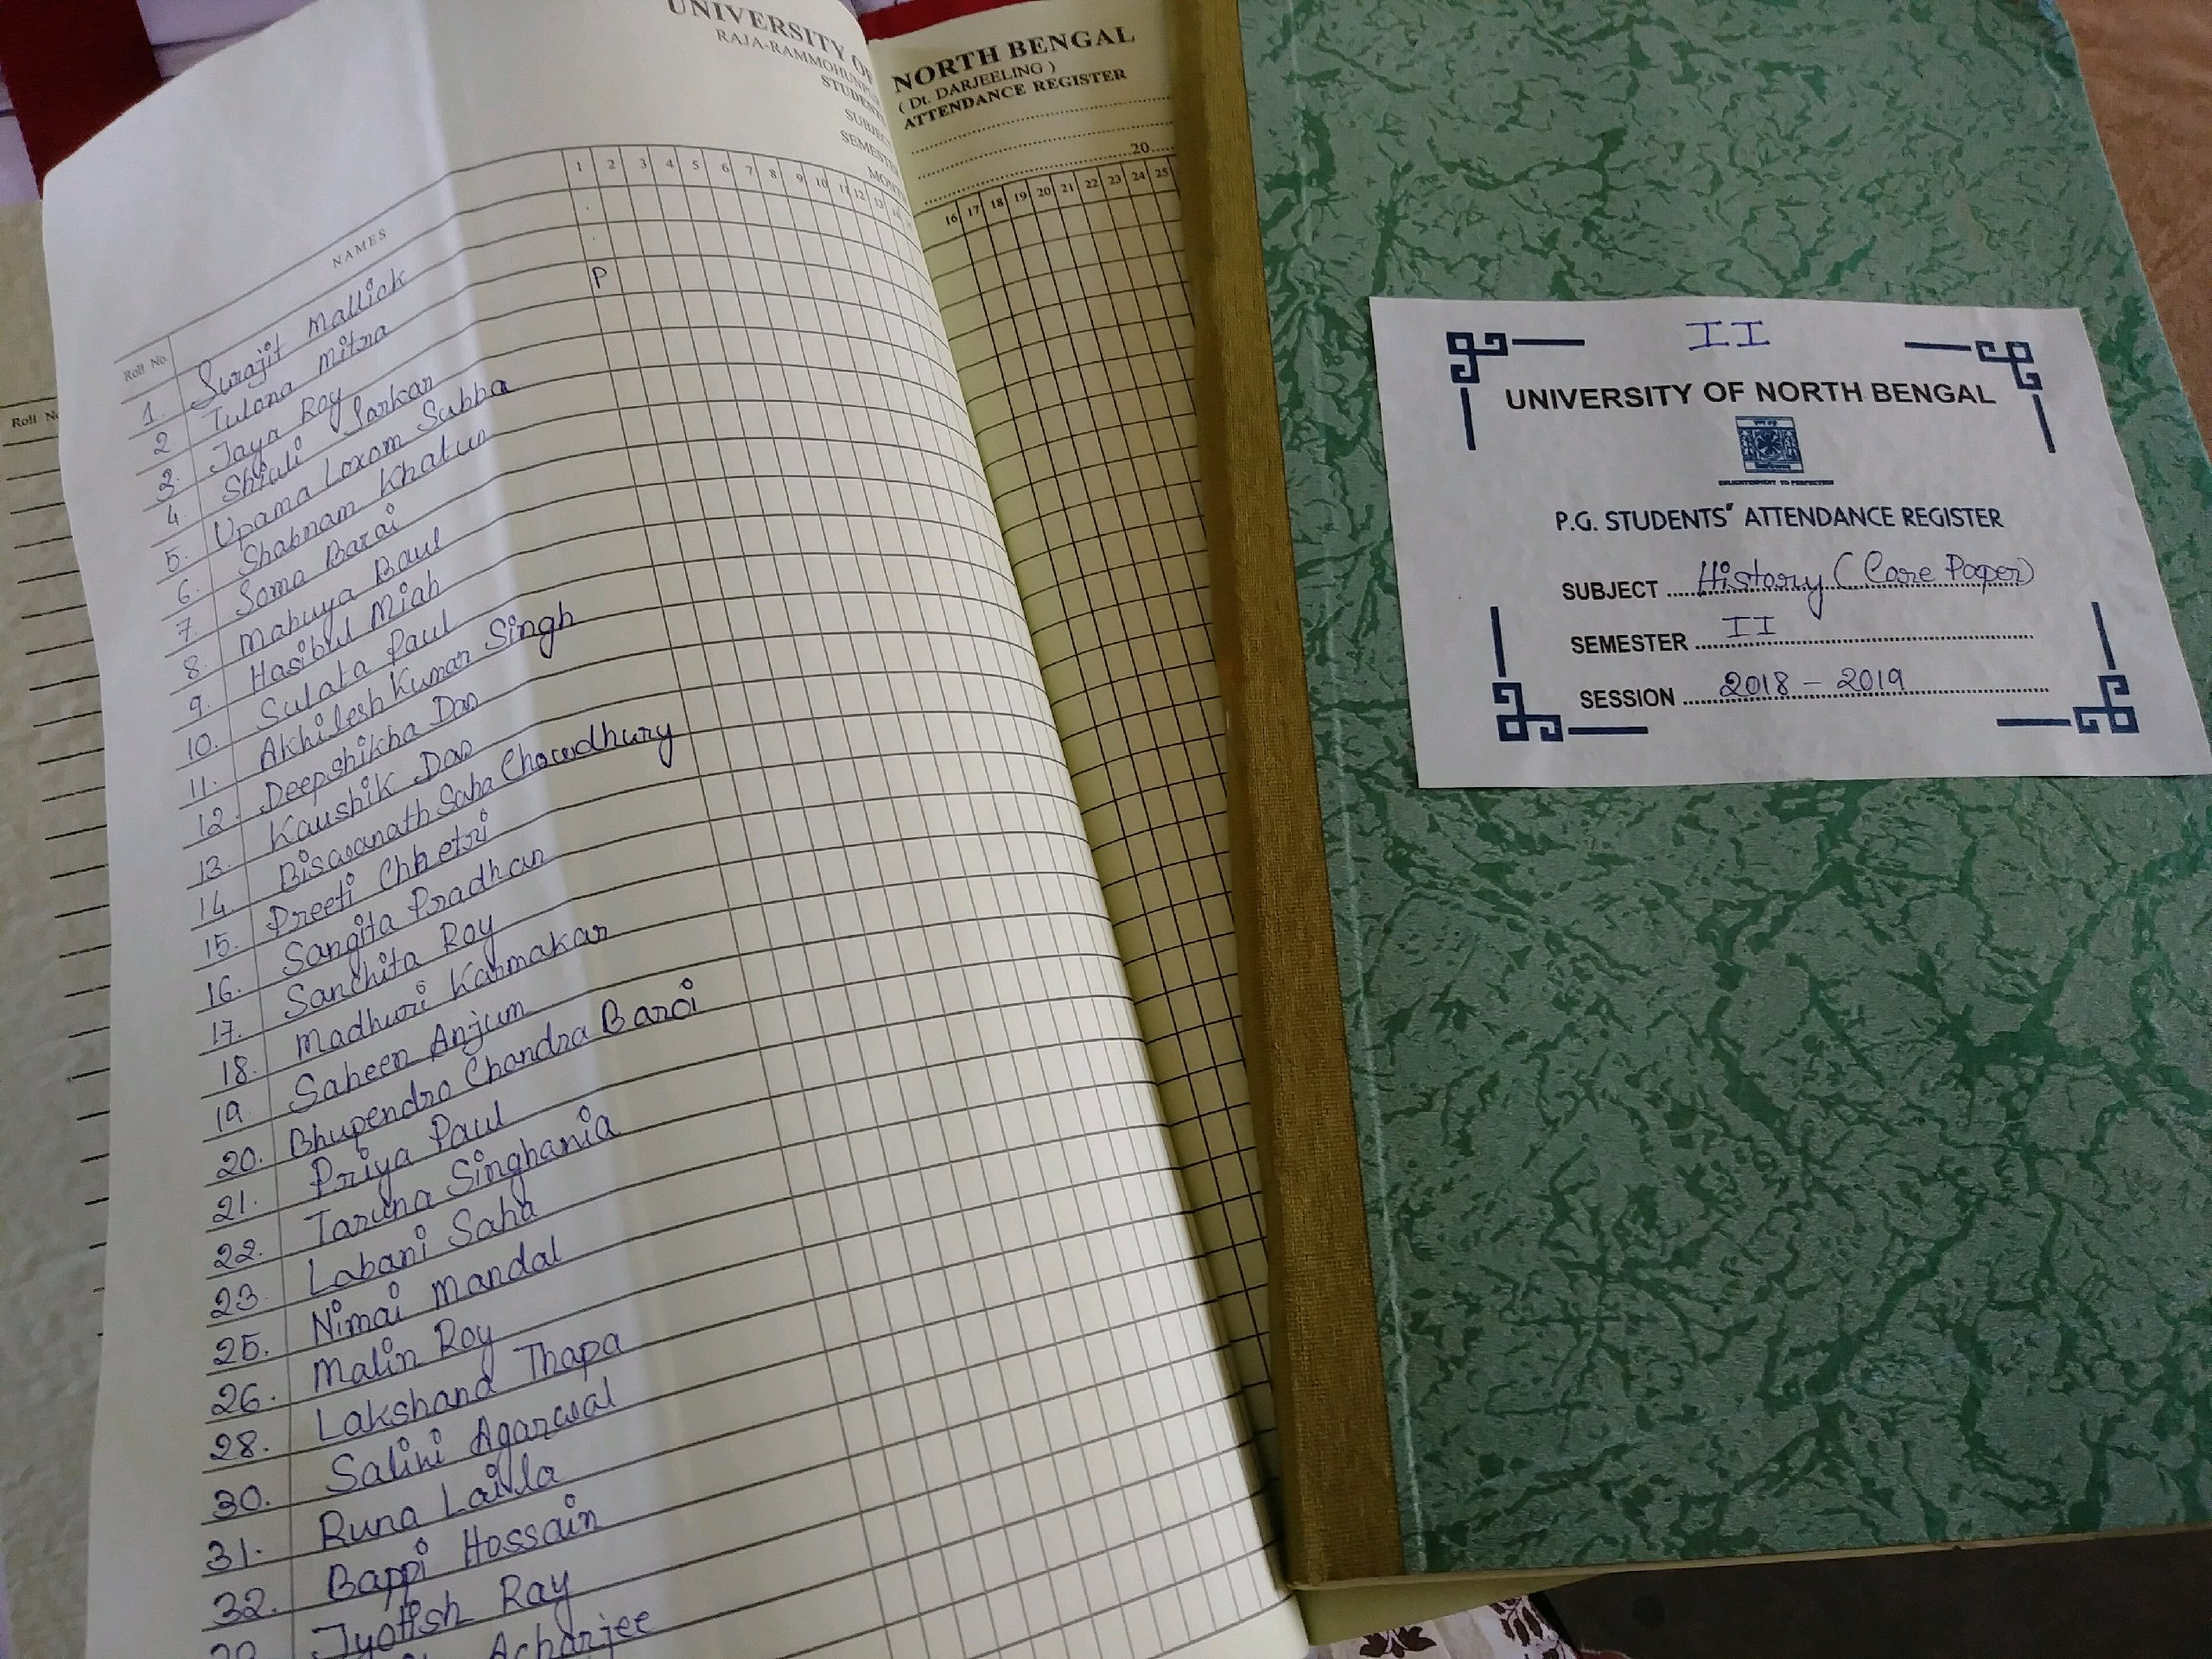 UNIVERSITY OF NORTH BENGAL
RAJA-RAMMOHUNPUR ( Dt. DARJEELING )
STUDENTS ATTENDANCE REGISTER
SUBJECT
SEMESTER
MONTH 20
Roll No. NAMES 1 2 3 4 5 6 7 8 9 10 11 12 13 14 16 17 18 19 20 21 22 23 24 25
1. Surajit Mallick
2 Tulona Mitra
3. Jaya Roy P
4. Shiuli Sarkar
5. Upama Loxom Subba
6. Shabnam Khatun
7 Soma Barai
8. Mahuya Baul
9. Hasibul Miah
10. Sulata Paul
11. Akhilesh Kumar Singh
12. Deepshikha Das
13. Kaushik Das
14 Biswanath Saha Chowdhury
15. Preeti Chhetri
16. Sangita Pradhan
17. Sanchita Roy
18. Madhuri Karmakar
19 Saheen Anjum
20. Bhupendra Chandra Baroi
21. Priya Paul
22. Taruna Singhania
23. Labani Saha
25. Nimai Mandal
26. Malin Roy
28. Lakshana Thapa
30. Salini Agarwal
31. Runa Laila
32. Bappi Hossain
Jyotish Ray
Acharjee
Roll No
II
UNIVERSITY OF NORTH BENGAL
ENLIGHTENMENT TO PERFECTION
P.G. STUDENTS' ATTENDANCE REGISTER
SUBJECT History (Core Paper)
SEMESTER II
SESSION 2018 - 2019